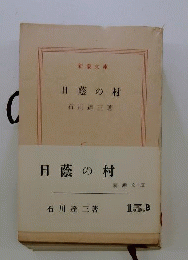 新潮文庫
日蔭の村
石川達三著
日蔭の村
新潮文庫
石川達三著